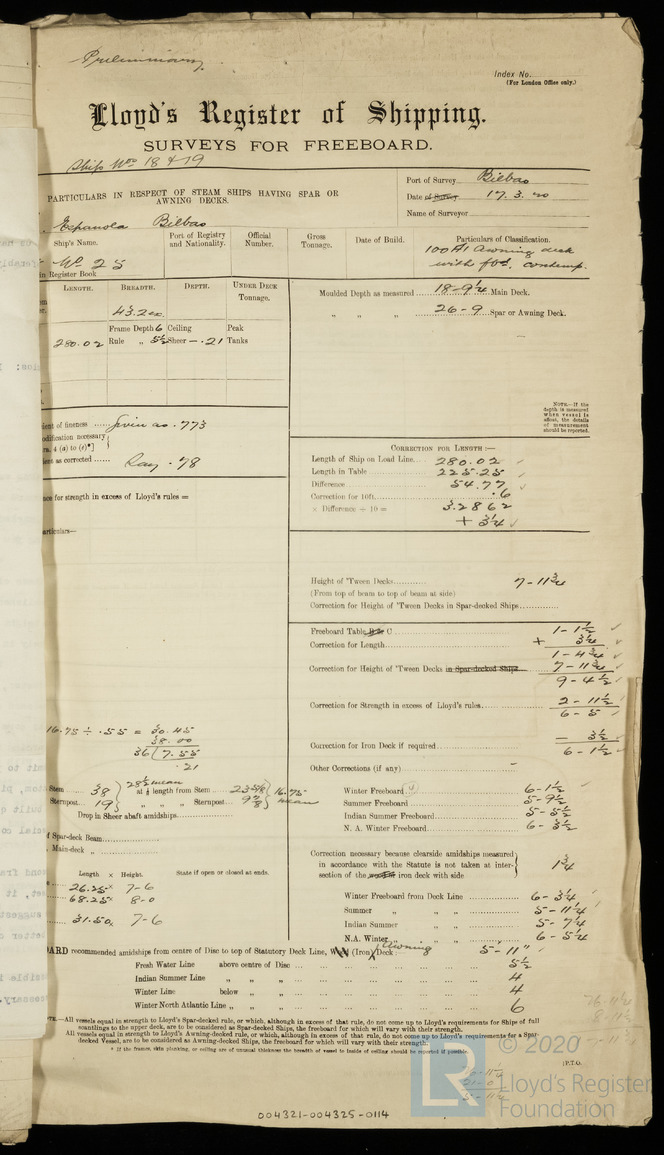 Preliminary.
Index No.
(For London Office only.)
Lloyd's Register of Shipping.
SURVEYS FOR FREEBOARD.
Ship Nos 18 & 19
PARTICULARS IN RESPECT OF STEAM SHIPS HAVING SPAR OR
AWNING DECKS.
Port of Survey Bilbao
Date of Survey 17.3.20
Name of Surveyor
Espanola Bilbao
Ship's Name.
Port of Registry
and Nationality.
Official
Number.
Gross
Tonnage.
Date of Build.
Particulars of Classification.
100A1 Awning deck
with fbd. contemp.
No 25
in Register Book
LENGTH. BREADTH. DEPTH. UNDER DECK
Tonnage.
43.2
Frame Depth 6 Ceiling Peak
280.02 Rule „ 5½ Sheer — .21 Tanks
Moulded Depth as measured 18-9¼ Main Deck.
„ „ „ 26-9 Spar or Awning Deck.
NOTE.—If the
depth is measured
when vessel is
afloat, the details
of measurement
should be reported.
ient of fineness Given as .773
odification necessary
ra. 4 (a) to (e)*]
ient as corrected Say .78
CORRECTION FOR LENGTH:—
Length of Ship on Load Line 280.02
Length in Table 225.25
Difference 54.77
Correction for 10ft. .6
× Difference ÷ 10 = 3.2862
+ 3¼
nce for strength in excess of Lloyd's rules =
articulars—
Height of 'Tween Decks 7-11¾
(From top of beam to top of beam at side)
Correction for Height of 'Tween Decks in Spar-decked Ships
Freeboard Table C 1-1½
Correction for Length + 3¼
1-4¾
Correction for Height of 'Tween Decks in Spar-decked Ships 7-11¾
9-4½
Correction for Strength in excess of Lloyd's rules 2-11½
6-5
Correction for Iron Deck if required — 3½
6-1½
Other Corrections (if any) —
16.75 ÷ .55 = 30.45
38.00
36 ( 7.55
.21
Stem 38 28½ mean at ⅛ length from Stem 23⅝ 16.75 mean
Sternpost 19 „ „ „ Sternpost 9⅞
Drop in Sheer abaft amidships
Winter Freeboard 6-1½
Summer Freeboard 5-9½
Indian Summer Freeboard 5-5½
N. A. Winter Freeboard 6-3½
f Spar-deck Beam
Main-deck „
Correction necessary because clearside amidships measured
in accordance with the Statute is not taken at inter-
section of the iron deck with side 1¾
Length × Height. State if open or closed at ends.
26.25 × 7-6
68.25 × 8-0
31.50 × 7-6
Winter Freeboard from Deck Line 6-3¼
Summer „ „ „ 5-11¼
Indian Summer „ „ 5-7¼
N.A. Winter „ „ 6-5¼
OARD recommended amidships from centre of Disc to top of Statutory Deck Line, Wood (Iron) Awning Deck: 5-11"
Fresh Water Line above centre of Disc 5½
Indian Summer Line „ „ 4
Winter Line below „ 4
Winter North Atlantic Line „ „ 6
TE.—All vessels equal in strength to Lloyd's Spar-decked rule, or which, although in excess of that rule, do not come up to Lloyd's requirements for Ships of full
scantlings to the upper deck, are to be considered as Spar-decked Ships, the freeboard for which will vary with their strength.
All vessels equal in strength to Lloyd's Awning-decked rule, or which, although in excess of that rule, do not come up to Lloyd's requirements for a Spar-
decked Vessel, are to be considered as Awning-decked Ships, the freeboard for which will vary with their strength.
* If the frames, skin planking, or ceiling are of unusual thickness the breadth of vessel to inside of ceiling should be reported if possible.
[P.T.O.
© 2020
LR Lloyd's Register
Foundation
004321-004325-0114